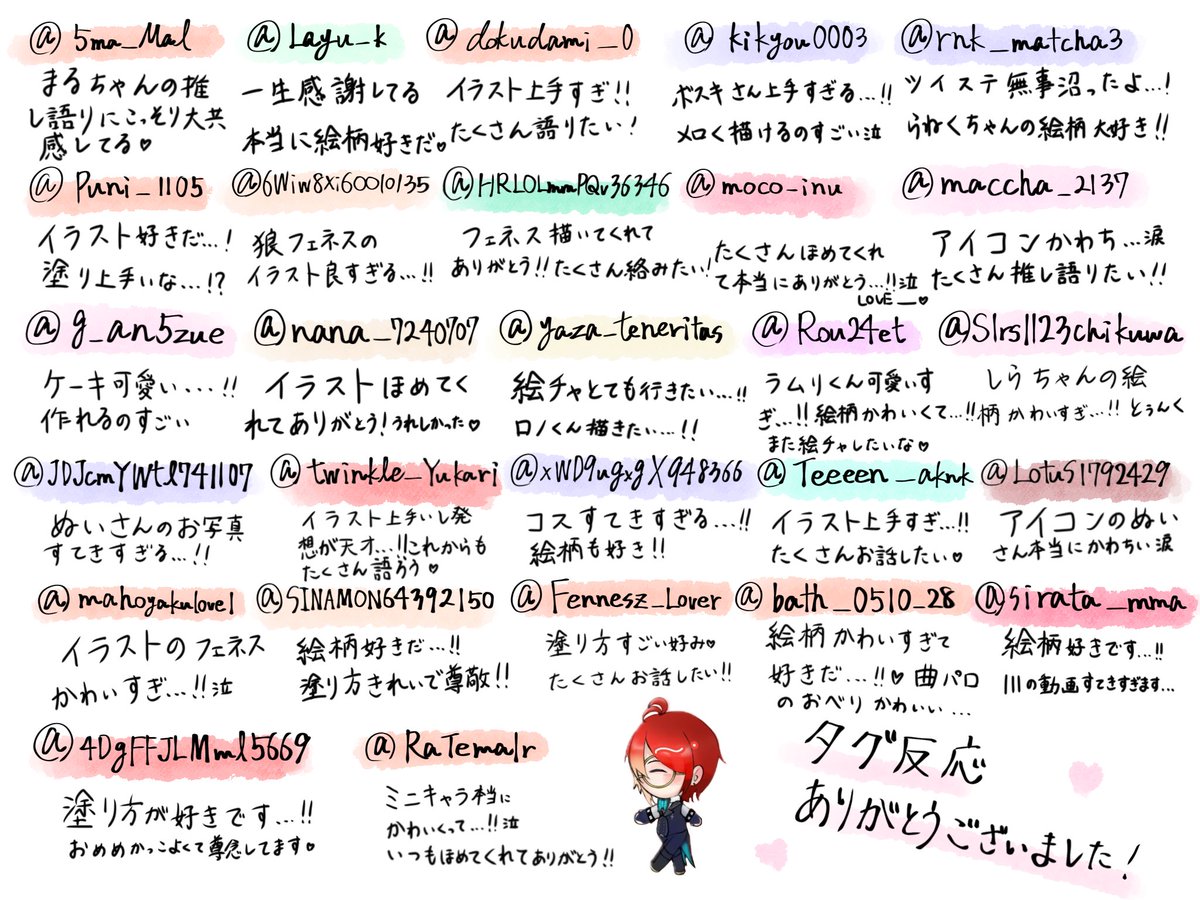 @5ma_Mal
まるちゃんの推
し語りにこっそり大共
感してる♡
@Layu_k
一生感謝してる
本当に絵柄好きだ♡
@dokudami_0
イラスト上手すぎ!!
たくさん語りたい!
@kikyou0003
ボスキさん上手すぎる...!!
メロく描けるのすごい泣
@rnk_matcha3
ツイステ無事沼ったよ...!
らねくちゃんの絵柄大好き!!
@Puni_1105
イラスト好きだ...!
塗り上手いな...!?
@6Wiw8Xi60010135
狼フェネスの
イラスト良すぎる...!!
@HRLOLmmPQv36346
フェネス描いてくれて
ありがとう!!たくさん絡みたい!
@moco_inu
たくさんほめてくれ
て本当にありがとう...!!泣
LOVE_♡
@maccha_2137
アイコンかわち...涙
たくさん推し語りたい!!
@g_an5zue
ケーキ可愛い...!!
作れるのすごい
@nana_7240707
イラストほめてく
れてありがとう!うれしかった♡
@yaza_teneritas
絵チャとても行きたい...!!
ロノくん描きたい...!!
@Rou24et
ラムリくん可愛いす
ぎ...!!絵柄かわいくて...!!
また絵チャしたいな♡
@Slrs1123chikuwa
しらちゃんの絵
柄かわいすぎ...!!とぅんく
@JDJcmYWtl741107
ぬいさんのお写真
すてきすぎる...!!
@twinkle_Yukari
イラスト上手いし発
想が天才...!!これからも
たくさん語ろう♡
@xWD9ugxgX948366
コスすてきすぎる...!!
絵柄も好き!!
@Teeeen_aknk
イラスト上手すぎ...!!
たくさんお話したい♡
@Lotus1792429
アイコンのぬい
さん本当にかわちい涙
@mahoyakulove1
イラストのフェネス
かわいすぎ...!!泣
@SINAMON64392150
絵柄好きだ...!!
塗り方きれいで尊敬!!
@Fennesz_Lover
塗り方すごい好み♡
たくさんお話したい!!
@bath_0510_28
絵柄かわいすぎて
好きだ...!!♡曲パロ
のおべりかわいい...
@sirata_mma
絵柄好きです...!!
111の動画すてきすぎます...
@4DgFFJLMml5669
塗り方が好きです...!!
おめめかっこよくて尊念してます♡
@RaTemalr
ミニキャラ本当に
かわいくって...!!泣
いつもほめてくれてありがとう!!
タグ反応
ありがとうございました!